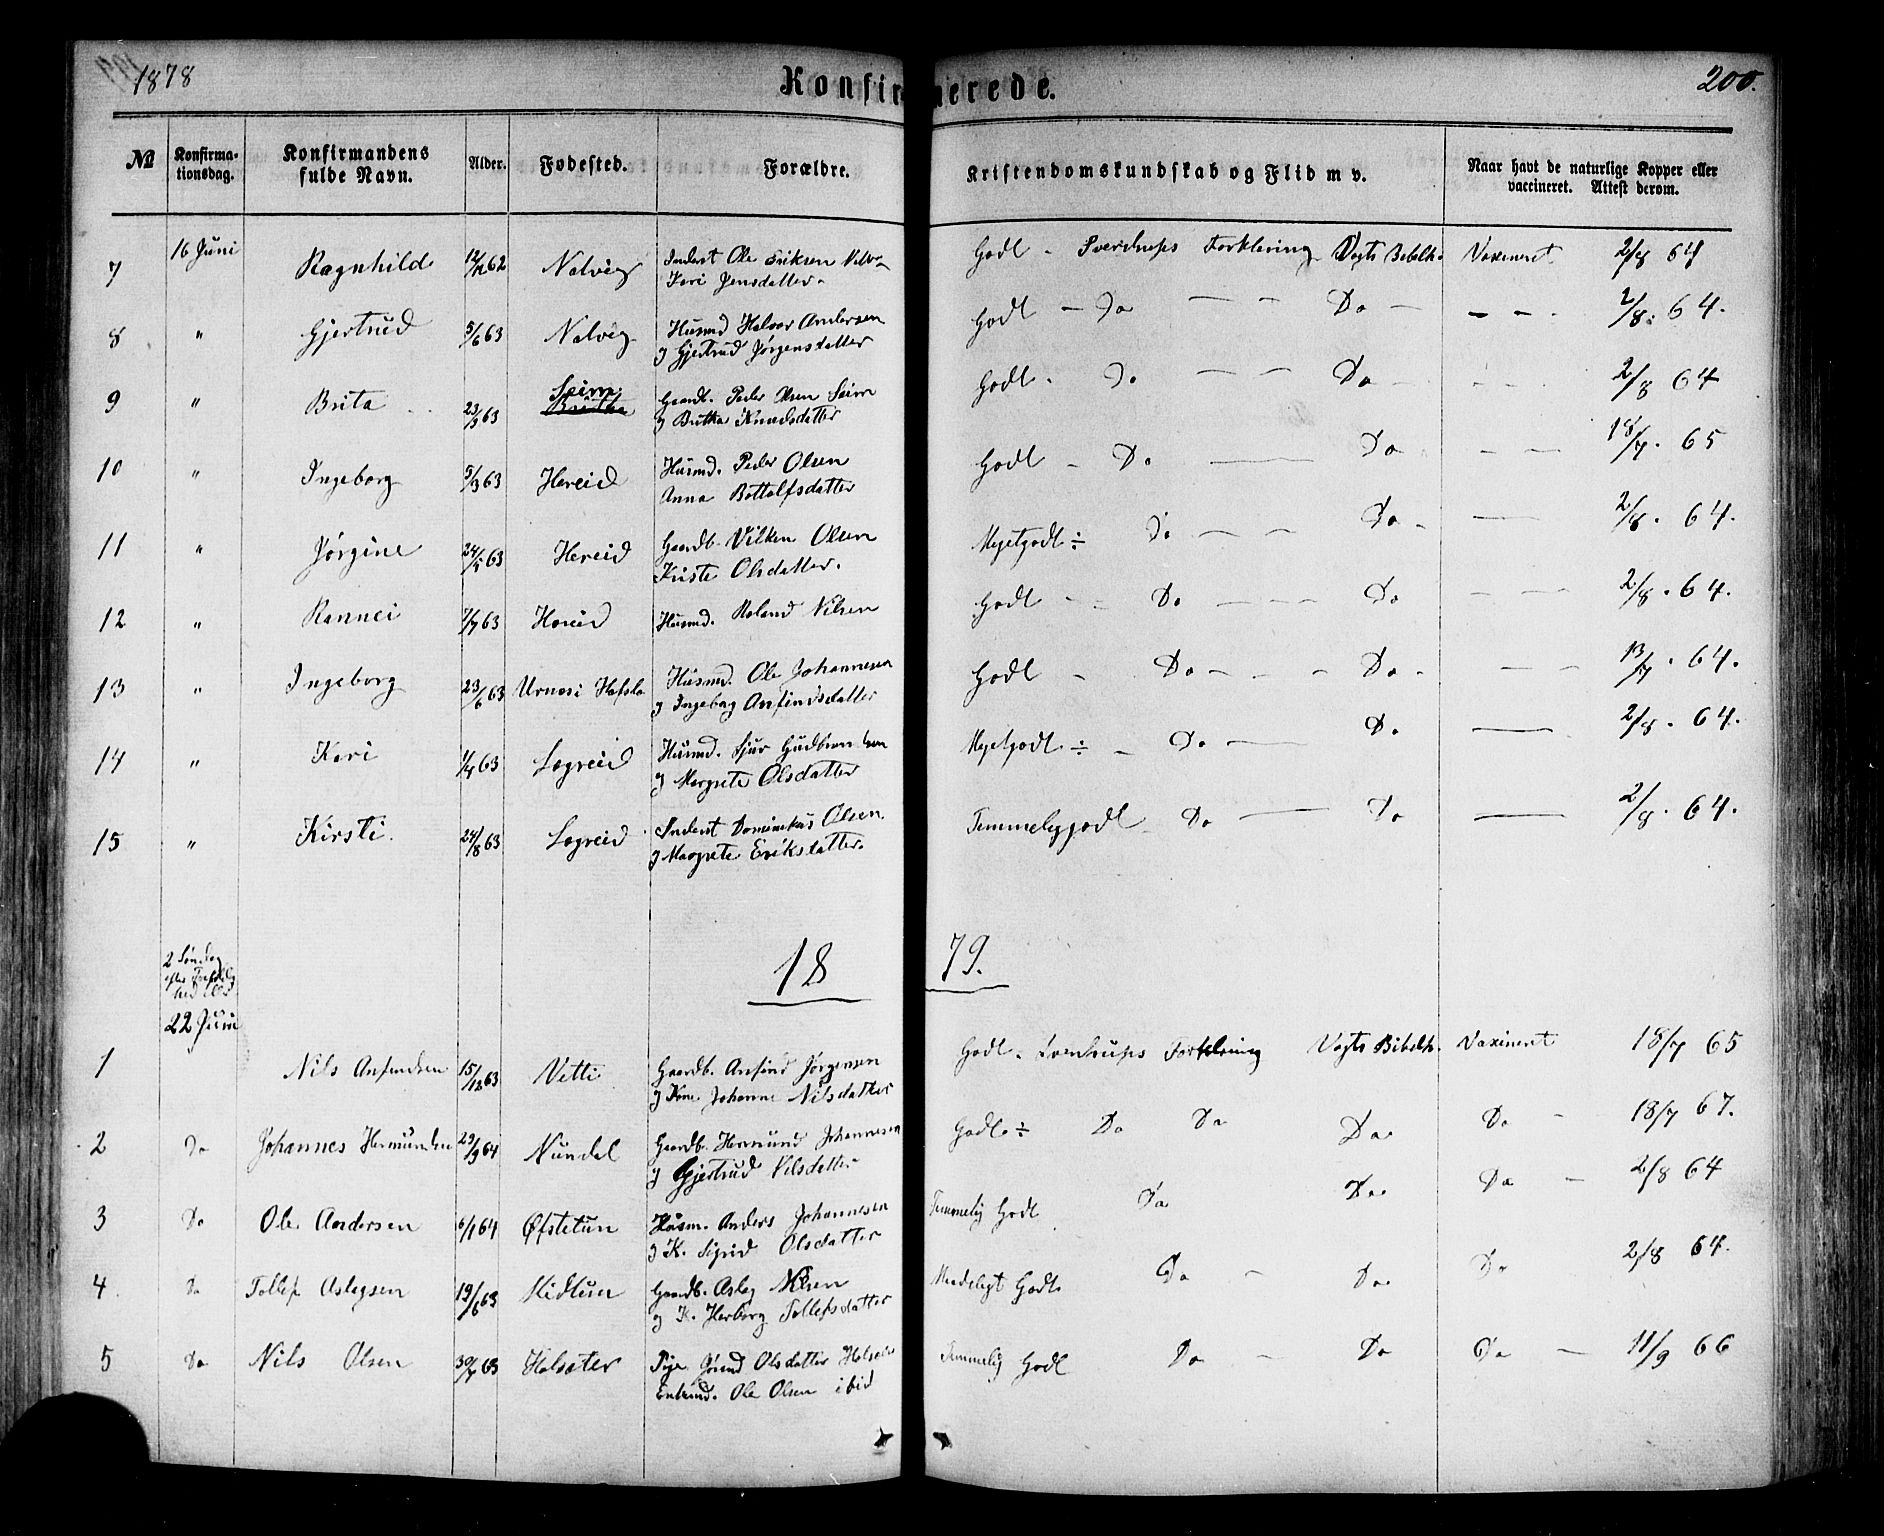 1878 Konfirmerede. 200.
№ Konfirma-tionsdag. Konfirmandens fulde Navn. Alder. Fødested. Forældre. Kristendomskundskab og Flid m v. Naar havt de naturlige Kopper eller vaccineret. Attest derom.
7 16 Juni Ragnhild 12/12 62 Nalvig Inderst Ole Eriksen
Kari Jensdatter. Godt - Sverdrups Forklering Vogts Bibelh. Vaxineret 2/8 64
8 " Gjertrud 5/6 63 Nalvig Husmd Halvor Andersen
g Gjertrud Jørgensdatter Godt - Do - - Do - - - 2/8. 64.
9 " Brita 23/3 63 Seim Gaardb. Peder Olsen Seim
g Brita Knudsdatter Godt - Do - - Do - - - 2/8 64
10 " Ingeborg 5/3 63 Hereid Husmd. Peder Olsen
Anna Bottolfsdatter Godt - Do - Do - - 18/7. 65
11 " Jørgine 24/5 63 Hereid Gaardb. Vilken Olsen
Kriste Olsdatter. Megetgodt ÷ Do - - Do - - 2/8. 64.
12 " Rannei 7/7 63 Hereid Husmd. Roland Nilsen Godt - - Do - - - Do - - 2/8. 64.
13 " Ingeborg 23/6 63 Urnæsi Hafslo Husmd. Ole Johannesen
g Ingebog Anfindsdatter Godt - Do - - Do - - - 13/7. 64.
14 " Kari 1/4 63 Lægreid Husmd. Sjur Gudbrandsen
g Margrete Olsdatter Megetgodt ÷ - Do - Do - 2/8. 64.
15 " Kirsti. 24/8 63 Lægreid Inderst Dominikus Olsen.
g Margrete Eriksdatter. Temmeliggodt - Do - Do - 2/8. 64.
2 Søndag
efter
1879.
22 Juni
1 Nils Anfindsen 15/12 63 Vetti Gaardb. Anfind Jørgensen
g Kone Johanne Nilsdatter Godt - Sverdrups Forklering Vogts Bibelh. Vaxineret 18/7 65
2 Do Johannes Hermundsen 29/9 64 Nundal Gaardb. Hermund Johannesen
g Gjertrud Nilsdatter Godt ÷ Do Do Do Do - 18/7 67.
3 Do Ole Andersen 6/1 64 Øfstetun Husm. Anders Johannesen
g K. Sigrid Olsdatter Temmelig Godt Do Do Do - 2/8 64
4 Do Tollef Aslagsen 19/6 63 Midtun Gaardb. Aslag Nilsen
g K. Herborg Tollefsdatter Maadeligt Godt Do - Do Do 2/8 64.
5 Do Nils Olsen 30/7 63 Halsæter Pige Jørend Olsdatter
Enkemd. Ole Olsen ibid Temmelig Godt Do - Do Do - 11/9 66